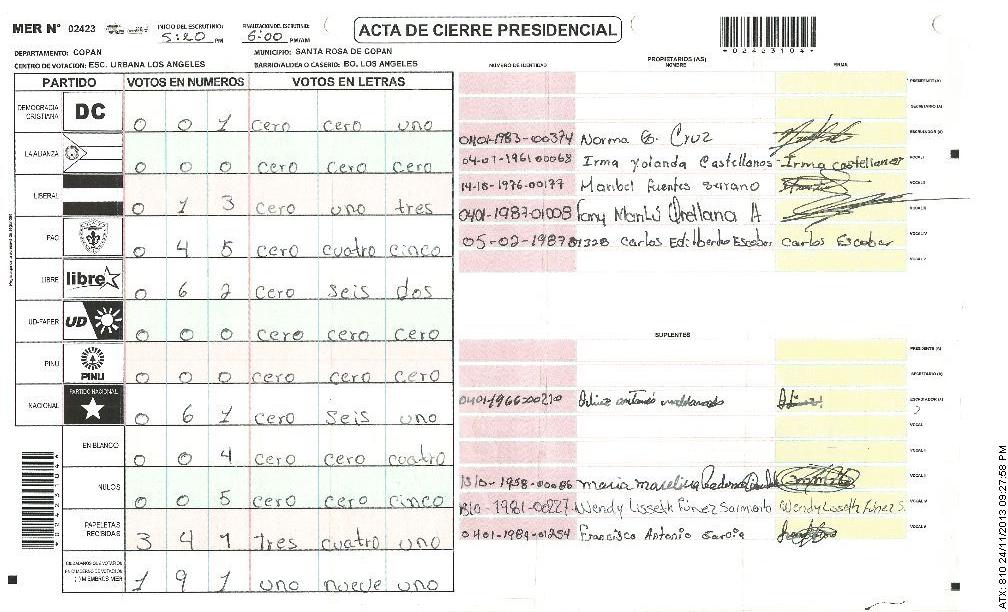 MER N° 02423 INICIO DEL ESCRUTINIO: 5:20 PM FINALIZACION DEL ESCRUTINIO: 6:00 PM/AM
ACTA DE CIERRE PRESIDENCIAL
*02423104*
DEPARTAMENTO: COPAN MUNICIPIO: SANTA ROSA DE COPAN
CENTRO DE VOTACION: ESC. URBANA LOS ANGELES BARRIO/ALDEA O CASERIO: BO. LOS ANGELES
PARTIDO VOTOS EN NUMEROS VOTOS EN LETRAS
DEMOCRACIA CRISTIANA DC 0 0 1 cero cero uno
LA ALIANZA 0 0 0 cero cero cero
LIBERAL 0 1 3 cero uno tres
PAC 0 4 5 cero cuatro cinco
LIBRE libre 0 6 2 cero seis dos
UD-FAPER UD 0 0 0 cero cero cero
PINU PINU 0 0 0 cero cero cero
NACIONAL PARTIDO NACIONAL 0 6 1 cero seis uno
EN BLANCO 0 0 4 cero cero cuatro
NULOS 0 0 5 cero cero cinco
PAPELETAS RECIBIDAS 3 4 1 tres cuatro uno
CIUDADANOS QUE VOTARON 1 9 1 uno nueve uno
NUMERO DE IDENTIDAD PROPIETARIOS (AS) NOMBRE FIRMA
PRESIDENTE (A)
SECRETARIO (A)
0401-1983-00374 Norma E. Cruz ESCRUTADOR (A)
04-01-196100068 Irma Yolanda Castellanos Irma Castellanos VOCAL I
14-18-1976-00177 Maribel Fuentes Serrano VOCAL II
0401-1987-01008 Orellana A VOCAL III
05-02-1987 01328 Carlos Edilberto Escobar Carlos Escobar VOCAL IV
VOCAL V
SUPLENTES
PRESIDENTE (A)
SECRETARIO (A)
0401-1966-00210 ESCRUTADOR (A)
VOCAL I
VOCAL II
1958-00086 maria VOCAL III
1981-00227 Wendy Lisseth Fúnez Sarmiento Wendy Lisseth Fúnez S. VOCAL IV
0401-1989-01254 Francisco Antonio Garcia VOCAL V
ATX: 810 24/11/2013 09:27:58 PM